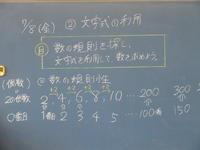 7/8(金) ② 文字式の利用
目 数の規則を探し、
文字式を利用して、数を求めよう。
② 数の規則性
(偶数) +2 +2 +2 +2
2, 4, 6, 8, 10 ... 200 300
1番目 2 3 4 5 ... 100番 150